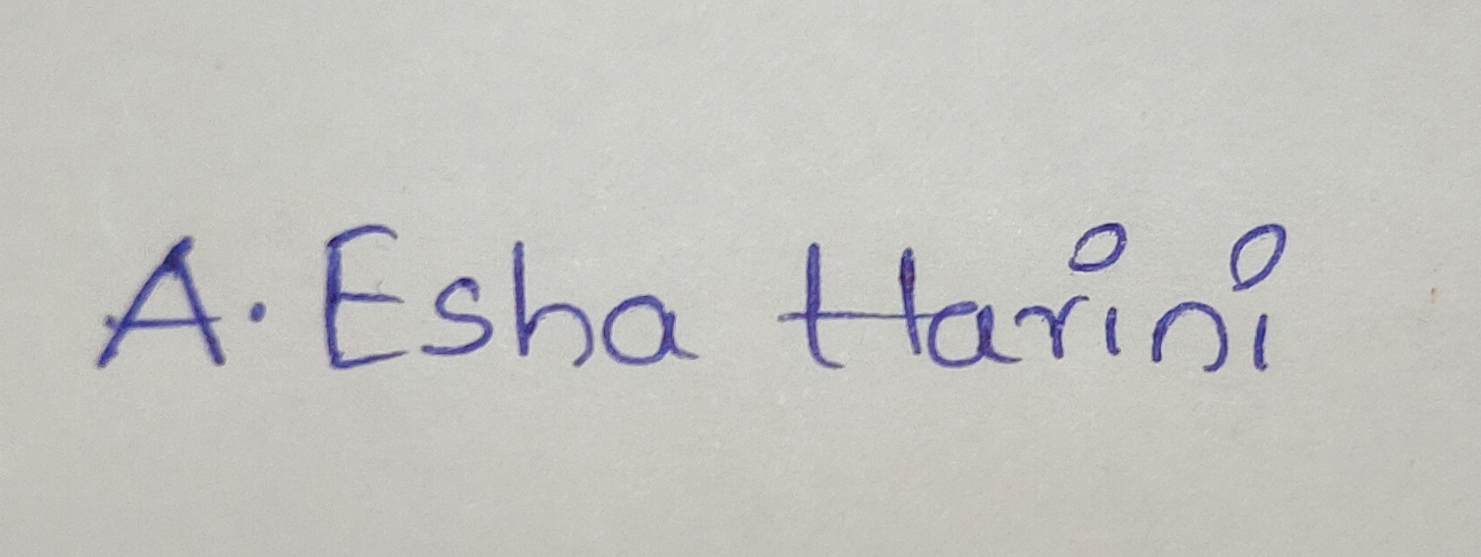 A. Esha Harini